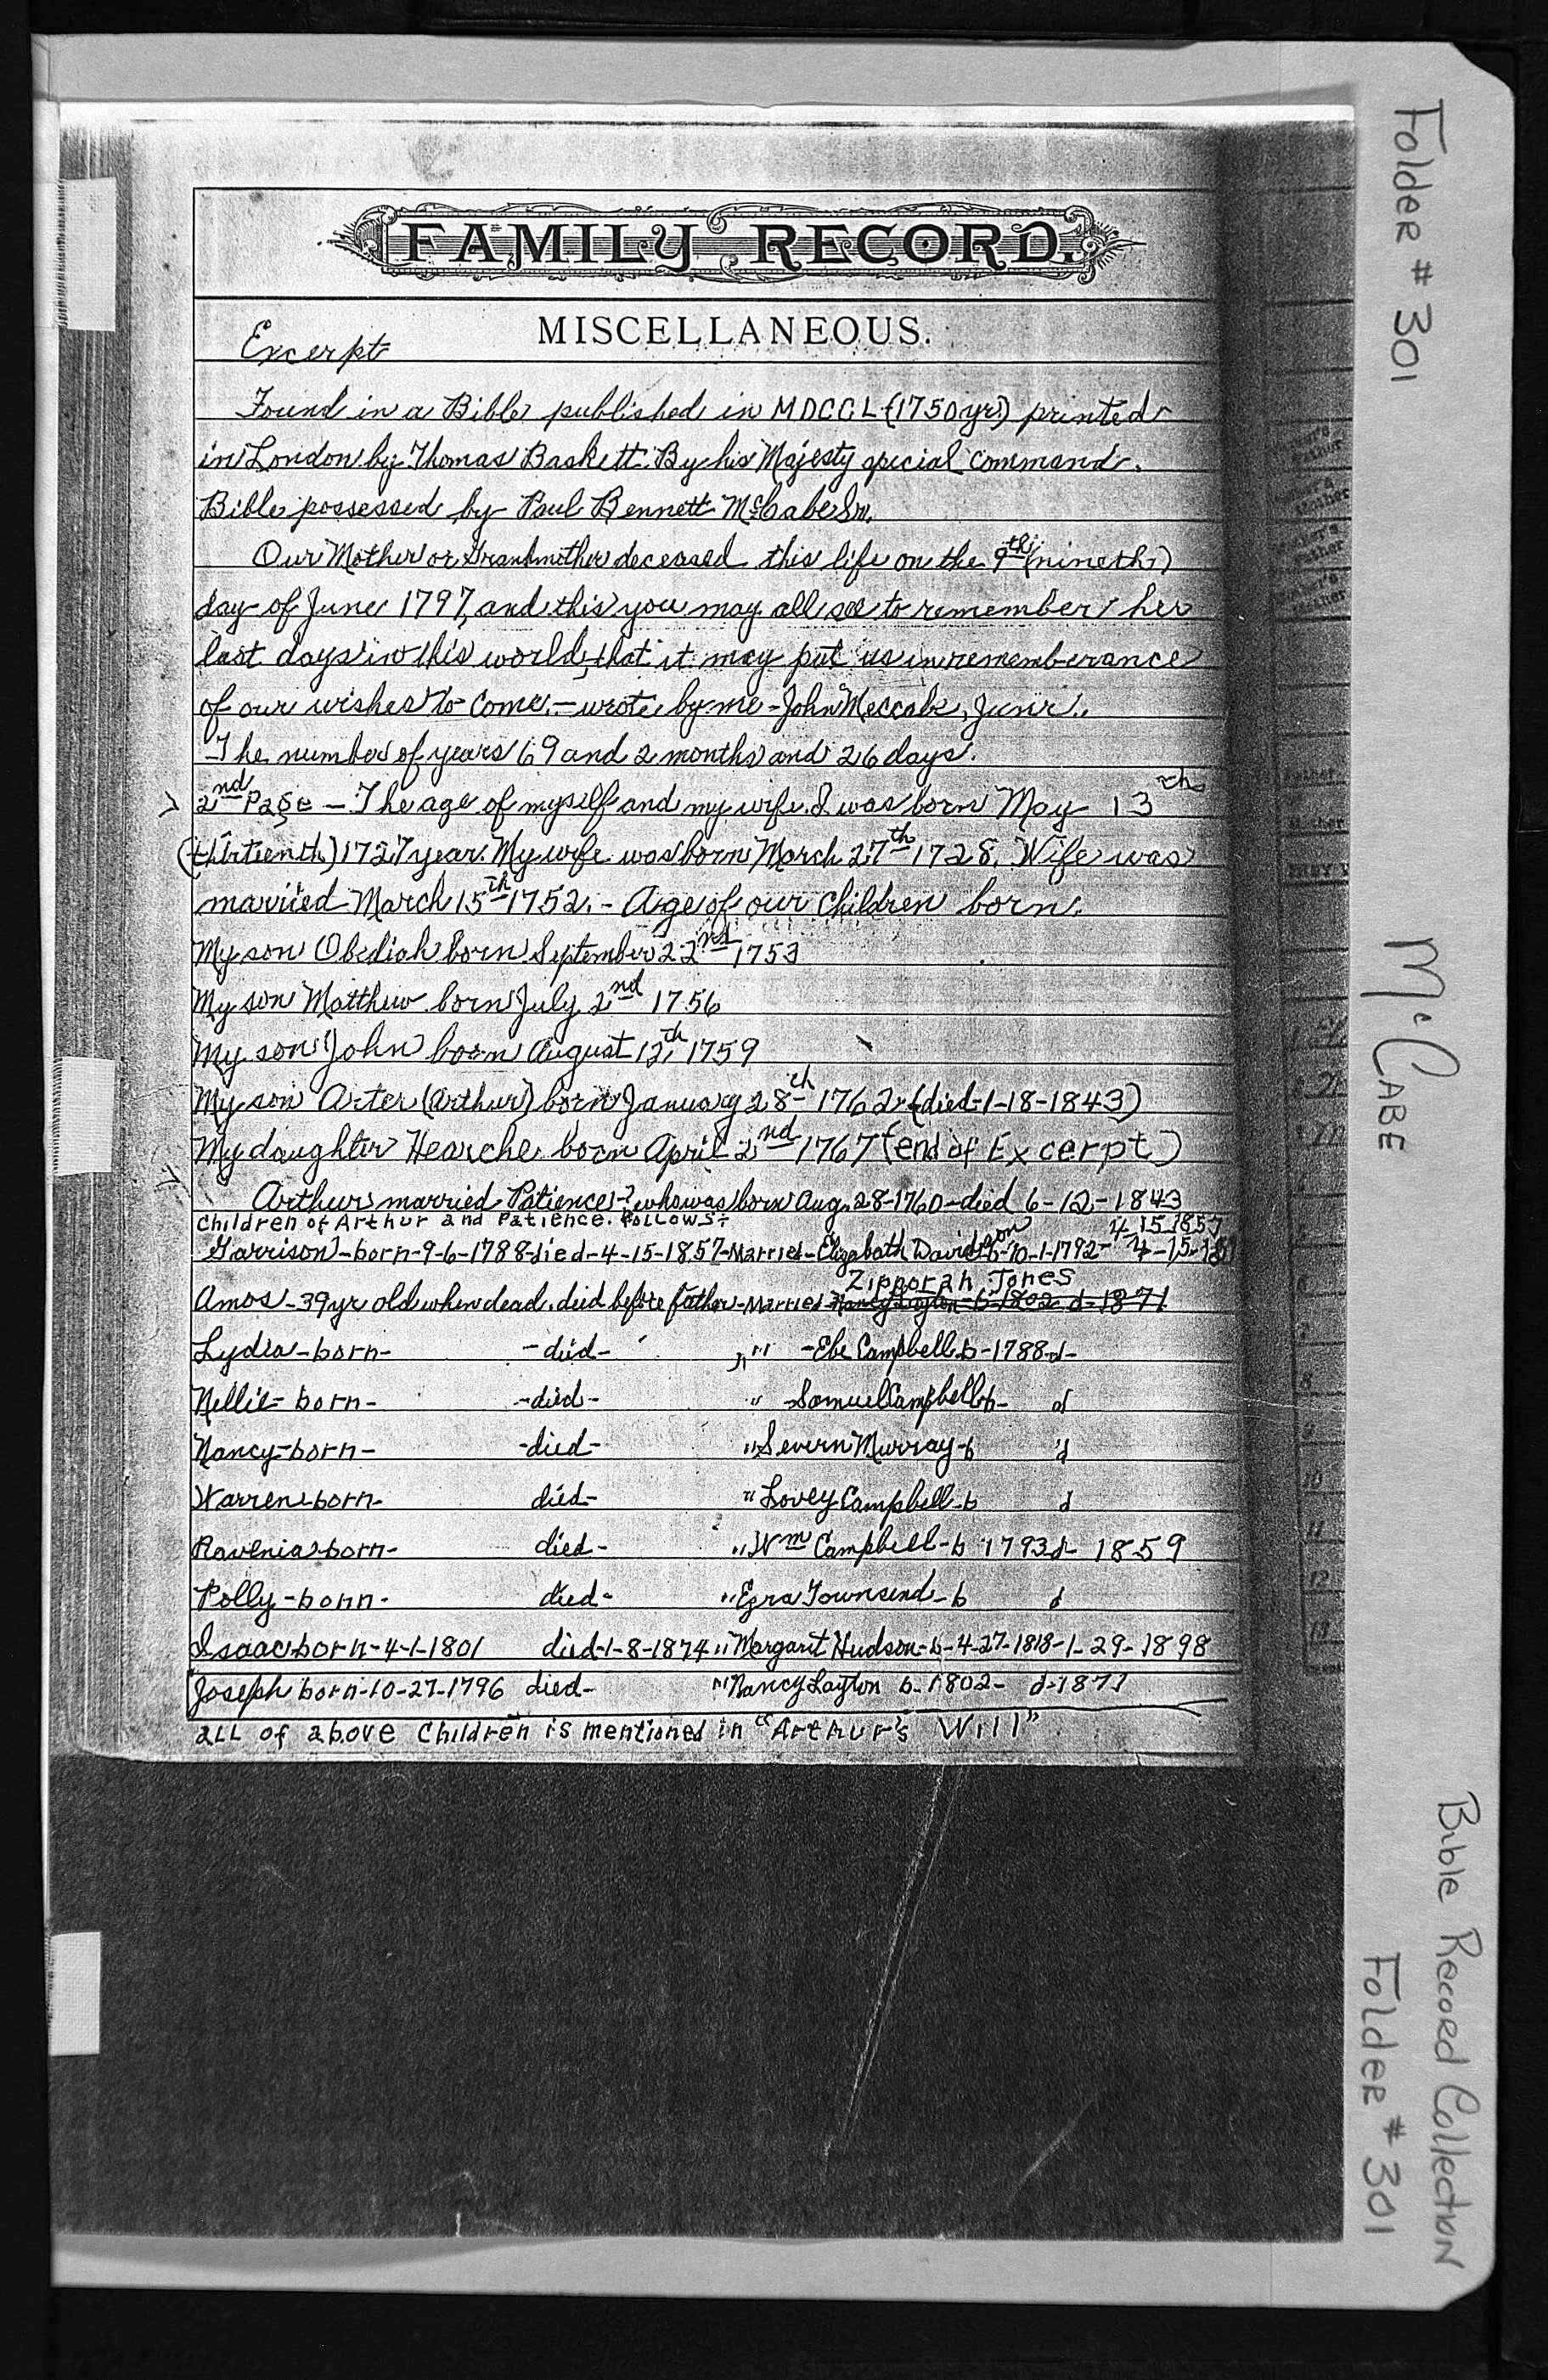 FAMILY RECORD.
MISCELLANEOUS.
Excerpt
Found in a Bible published in MDCCL (1750 yr.) printed
in London by Thomas Baskett. By his Majesty special command.
Bible possessed by Paul Bennett McCabe Sr.
Our Mother or Grandmother deceased this life on the 9th (nineth)
day of June 1797, and this you may all see to remember her
last days in this world, that it may put us in rememberance
of our wishes to come. - wrote by me - John Meccabe, Junir.
The number of years 69 and 2 months and 26 days.
> 2nd Page - The age of myself and my wife. I was born May 13th
(thirteenth) 1727 year. My wife was born March 27th 1728. Wife was
married March 15th 1752. - Age of our children born.
My son Obediah born September 22nd 1753
My son Matthew born July 2nd 1756
My son John born August 12th 1759
My son Arter (Arthur) born January 28th 1762 (died-1-18-1843)
My daughter Hearche born April 2nd 1767 (end of Excerpt)
Arthur married Patience-? who was born Aug. 28-1760-died 6-12-1843
Children of Arthur and Patience. Follows:
4 15 1857
Garrison-born-9-6-1788-died-4-15-1857-Married-Elizabath Davidson b-10-1-1792- 4-15-
Zipporah Jones
Amos-39 yr old when dead. died before father-Married Nancy Layton-b-1802 d-1871
Lydia-born- -died- " -Ebe Campbell-b-1788-d-
Nellie-born- -died- " -Samuel Campbell-b- d
Nancy-born- -died- " Severn Murray-b d
Warren-born- died- " Lovey Campbell-b d
Ravenia-born- died- " Wm Campbell-b 1793 d- 1859
Polly-born- died- " Ezra Townsend-b d
Isaac-born-4-1-1801 died-1-8-1874 " Margaret Hudson-b-4-27-1818-1-29-1898
Joseph born-10-27-1796 died- " Nancy Layton b-1802- d-1871
all of above Children is mentioned in "Arthur's Will"
Folder # 301
McCabe
Bible Record Collection
Folder # 301